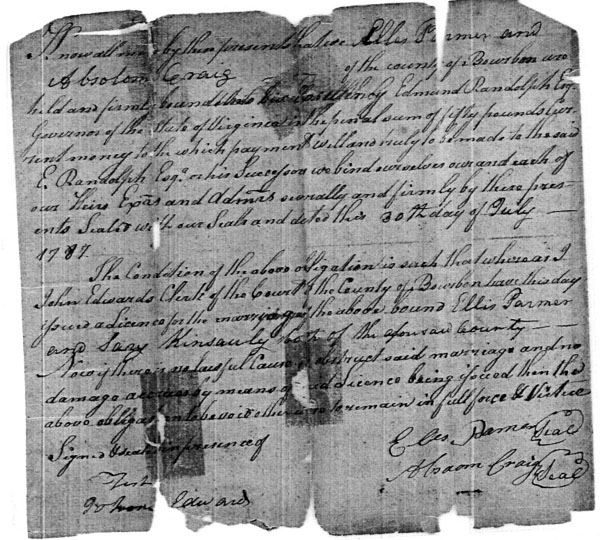 Know all men by these presents that we Ellis Parmer and
Absolom Craig of the county of Bourbon are
held and firmly bound unto his Excellency Edmund Randolph Esq.
Governor of the State of Virginia in the penal sum of fifty pounds Cur
rent money to the which payment well and truly to be made to the said
E. Randolph Esq. or his Successors we bind ourselves our and each of
our Heirs Exrs and Admrs severally and firmly by these pres-
ents Sealed with our Seals and dated this 30th day of July
1787.
The Condition of the above obligation is such that whereas I
John Edwards Clerk of the Court of the County of Bourbon have this day
issued a Licence for the marriage of the above bound Ellis Parmer
and Kinsauly both of the county
Now if there is no lawful Cause to obstruct said marriage and no
damage accrues by means of said Licence being issued then the
above obligation to be void otherwise to remain in full force & Virtue
Signed & sealed in presence of
Ellis Parmer Seal
Absaom Craig Seal
Test
John Edwards